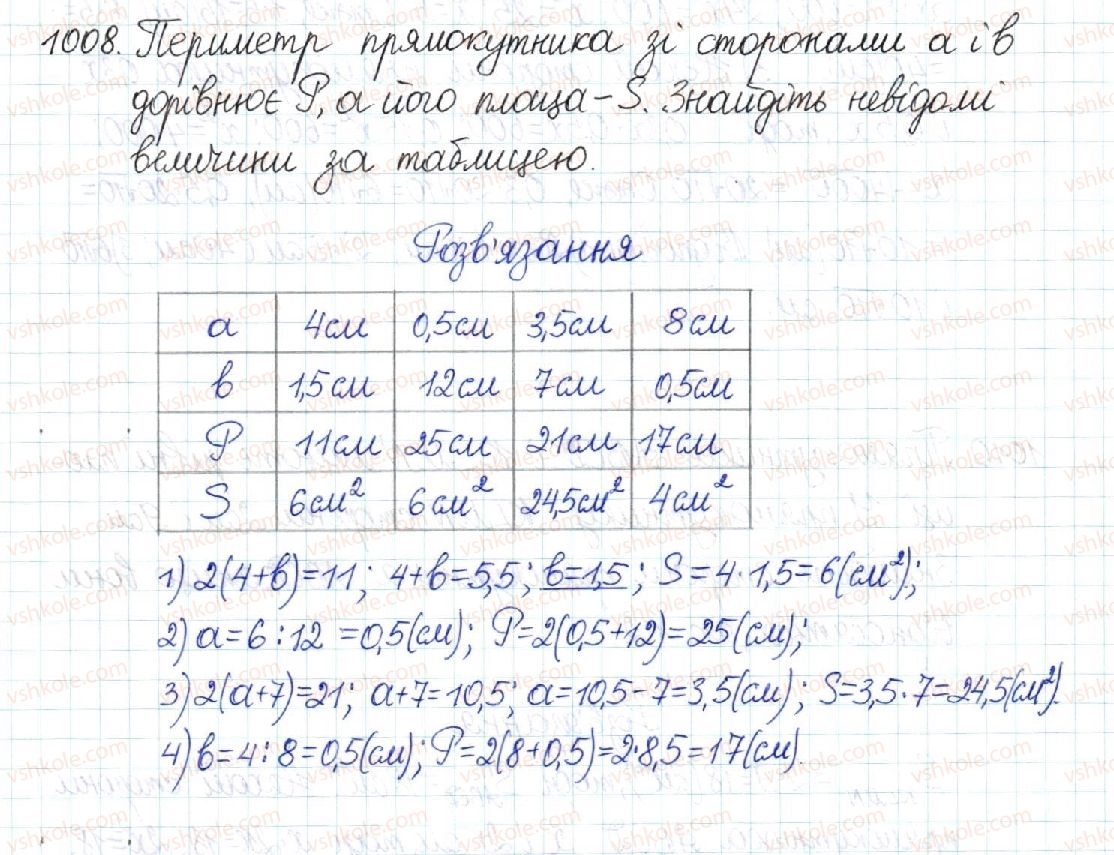 1008. Периметр прямокутника зі сторонами а і в
дорівнює P, а його площа – S. Знайдіть невідомі
величини за таблицею.
Розв'язання
а 4см 0,5см 3,5см 8см
в 1,5см 12см 7см 0,5см
P 11см 25см 21см 17см
S 6см² 6см² 24,5см² 4см²
1) 2(4+в)=11; 4+в=5,5; в=1,5; S=4·1,5=6(см²);
2) а=6:12=0,5(см); P=2(0,5+12)=25(см);
3) 2(а+7)=21; а+7=10,5; а=10,5-7=3,5(см); S=3,5·7=24,5(см²).
4) в=4:8=0,5(см); P=2(8+0,5)=2·8,5=17(см).
vshkole.com